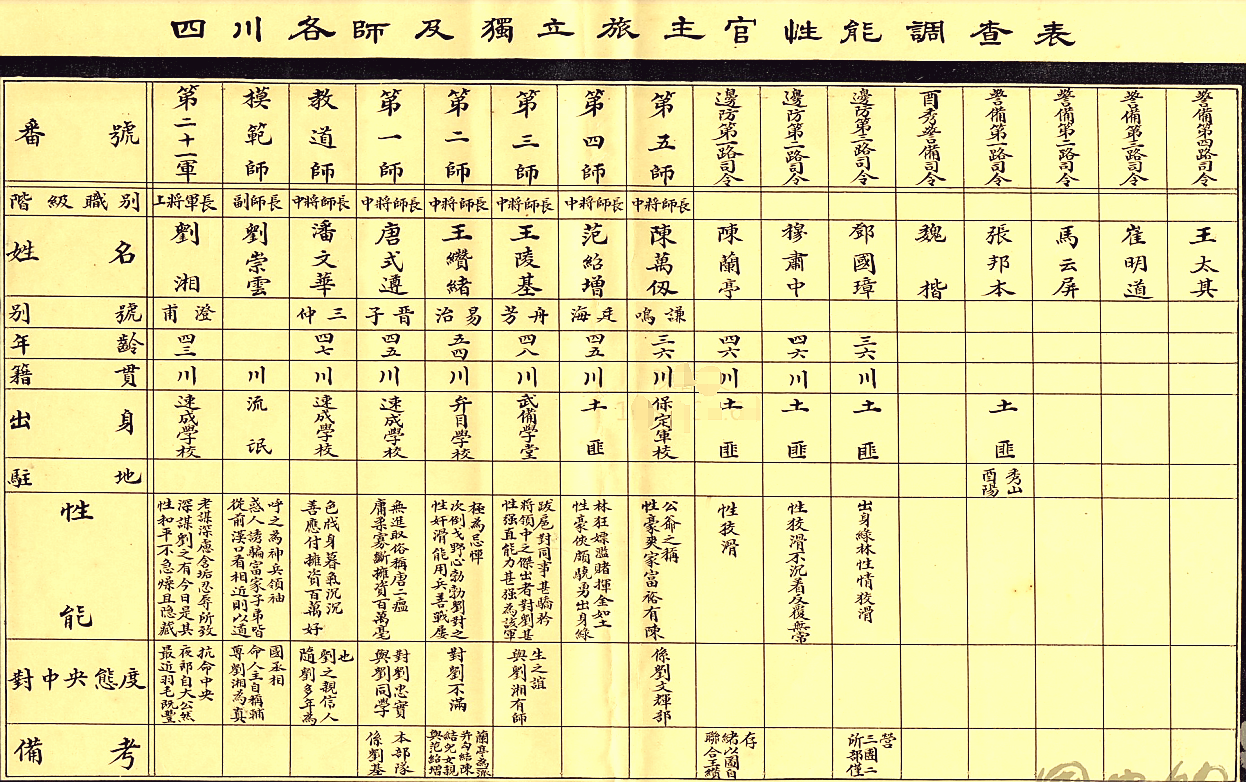 四川各師及獨立旅主官性能調查表
番號
第二十一軍
模範師
教道師
第一師
第二師
第三師
第四師
第五師
邊防第一路司令
邊防第二路司令
邊防第三路司令
酉秀警備司令
警備第一路司令
警備第二路司令
警備第三路司令
警備第四路司令
階級職別
上將軍長
副師長
中將師長
中將師長
中將師長
中將師長
中將師長
中將師長
姓名
劉湘
劉崇雲
潘文華
唐式遵
王纘緒
王陵基
范紹增
陳萬仭
陳蘭亭
穆肅中
鄧國璋
魏楷
張邦本
馬云屏
崔明道
王太其
別號
甫澄
仲三
子晉
治易
芳舟
海廷
鳴謙
年齡
四三
四七
四五
五四
四八
四五
三六
四六
四六
三六
籍貫
川
川
川
川
川
川
川
川
川
川
川
出身
速成學校
流氓
速成學校
速成學校
弁目學校
武備學堂
土匪
保定軍校
土匪
土匪
土匪
土匪
駐地
酉陽
秀山
性能
性和平不急燥且隱藏
深謀劉之有今日是其
老謀深慮含垢忍辱所致
從前漢口看相近則以道
惑人誘騙富家子弟皆
呼之為神兵領袖
善應付擁資百萬好
色戕身暮氣沉沉
庸柔寡斷擁資百萬毫
無進取俗稱唐二瘟
性奸滑能用兵善戰屢
次倒戈野心勃勃劉對之
極為忌憚
性强直能力甚强為該軍
將領中之傑出者對劉甚
跋扈對同事甚驕矜
性豪俠頗驍勇出身綠
林狂嫖濫賭揮金如土
性豪爽家富裕有陳
公爺之稱
性狡滑
性狡滑不沉着反覆無常
出身綠林性情狡滑
對中央態度
最近羽毛既豐
夜郎自大公然
抗命中央
尊劉湘為真
命人主自稱輔
國丞相
隨劉多年為
劉之親信人
也
與劉同學
對劉忠實
對劉不滿
與劉湘有師
生之誼
係劉文輝部
備考
係劉基
本部隊
與范紹增
結兒女親
并勾結陳
蘭亭為派
聯合王纘
緒以圖自
存
所部僅
三團二
營